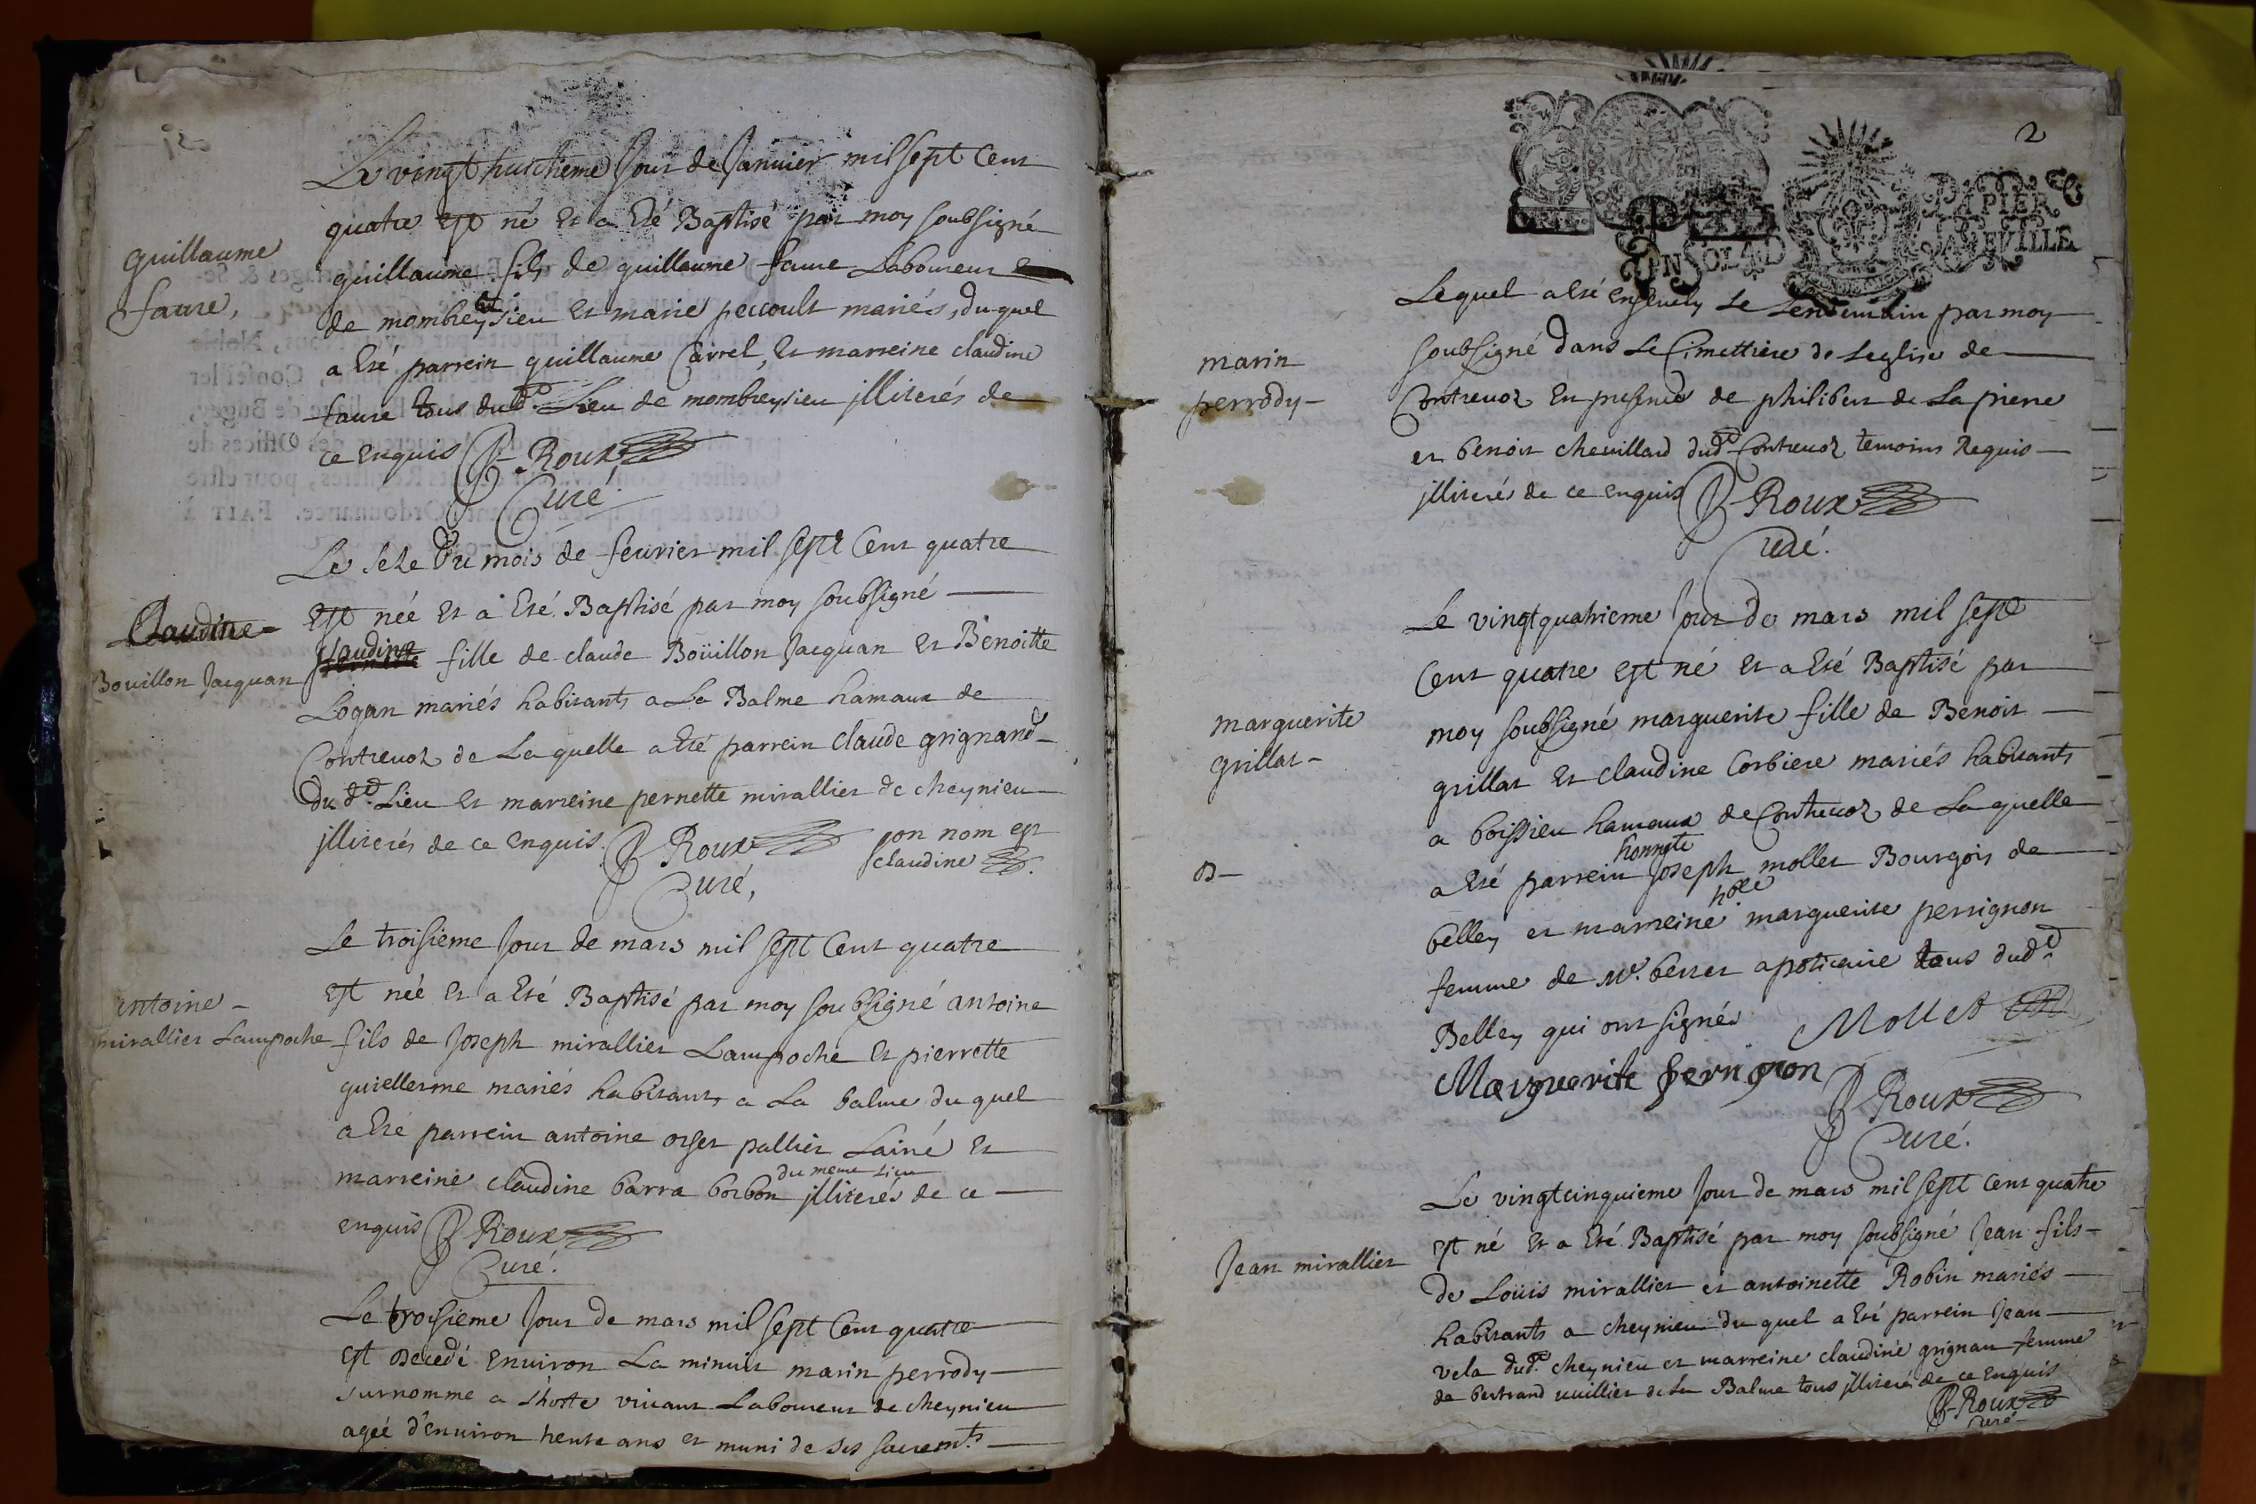 guillaume
faure,
Le vingt huictieme Jour de Janvier mil sept Cent
quatre est né et a Eté Baptisé par moy soubsigné
guillaume fils de guillaume faure Laboureur
de mombreysieu et marie peccoult mariés, duquel
a Eté parrein guillaume Cairel, et marreine claudine
faure tous dud. Lieu de mombreysieu jlliterés de
ce enquis Roux
Curé.
Claudine
Bouillon Jacquan
Le seze du mois de feurier mil sept Cent quatre
Est née et a Eté Baptisé par moy soubsigné
claudine fille de claude Boüillon Jacquan et Benoitte
Logan mariés habitants a La Balme hamaux de
Contreuoz de Laquelle a Eté parrein claude grignand
du d. Lieu et marreine pernette mirallier de cheynieu
jlliterés de ce enquis. Roux
Curé,
son nom est
claudine
antoine
mirallier Lampoche
Le troisieme Jour de mars mil sept Cent quatre
Est née et a Eté Baptisé par moy soubsigné antoine
fils de Joseph mirallier Lampoche et pierrette
guiellerme mariés habitants a La balme du quel
a Eté parrein antoine orset pallier Lainé et
marreine claudine barra borbon du meme Lieu jlliterés de ce
enquis Roux
Curé.
Le troisieme Jour de mars mil sept Cent quatre
est Decedé Environ La minuit marin perrody
surnomme a Lhoste viuant Laboureur de cheynieu
ageé d'enuiron trente ans et muni de ses sacremts
2
PAPIER
marin
perrody
Lequel a Eté enseuely Le Lendemain par moy
soubsigné dans Le Cimettiere de Leglise de
Contreuoz En presence de philibert de La pierre
et benoit cheuillard dud. Contreuoz temoins Requis
jlliterés de ce enquis Roux
Curé.
marguerite
grillat
B
Le vingtquatrieme Jour de mars mil sept
Cent quatre est né et a Eté Baptisé par
moy soubsigné marguerite fille de Benoit
grillat et claudine Corbiere mariés habitants
a boissieu hamaux de Contreuoz de Laquelle
a Eté parrein honneste Joseph mollet Bourgois de
belley et marreine marguerite perrignon
femme de Mr. berret apoticaire tous dud.
Belley qui ont signés Mollet
Marguerite perrignon
Roux
Curé.
Jean mirallier
Le vingtcinquieme Jour de mars mil sept Cent quatre
est né et a Eté Baptisé par moy soubsigné Jean fils
de Loüis mirallier et antoinette Robin mariés
habitants a cheynieu du quel a Eté parrein Jean
vela dud. cheynieu et marreine claudine grignan femme
de bertrand uuillier de La Balme tous jlliterés de ce enquis
Roux
Curé